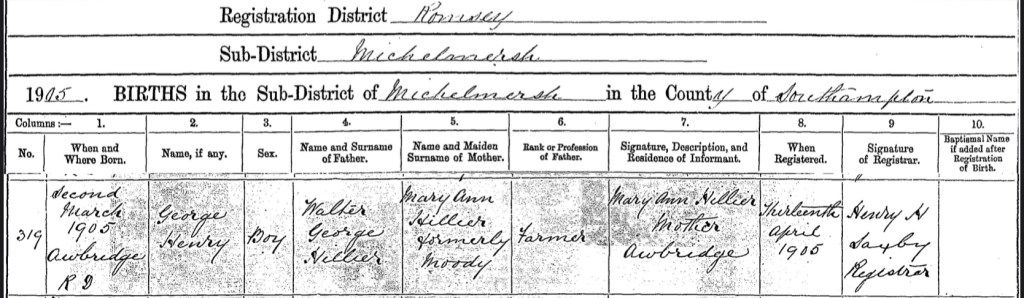 Registration District Romsey
Sub-District Michelmersh
1905. BIRTHS in the Sub-District of Michelmersh in the County of Southampton
Columns:— 1. 2. 3. 4. 5. 6. 7. 8. 9 10.
No. When and Where Born. Name, if any. Sex. Name and Surname of Father. Name and Maiden Surname of Mother. Rank or Profession of Father. Signature, Description, and Residence of Informant. When Registered. Signature of Registrar. Baptismal Name if added after Registration of Birth.
319
Second
March
1905
Awbridge
R D
George
Henry
Boy
Walter
George
Hillier
Mary Ann
Hillier
formerly
Moody
Farmer
Mary Ann Hillier
Mother
Awbridge
Thirteenth
April
1905
Henry H
Saxby
Registrar